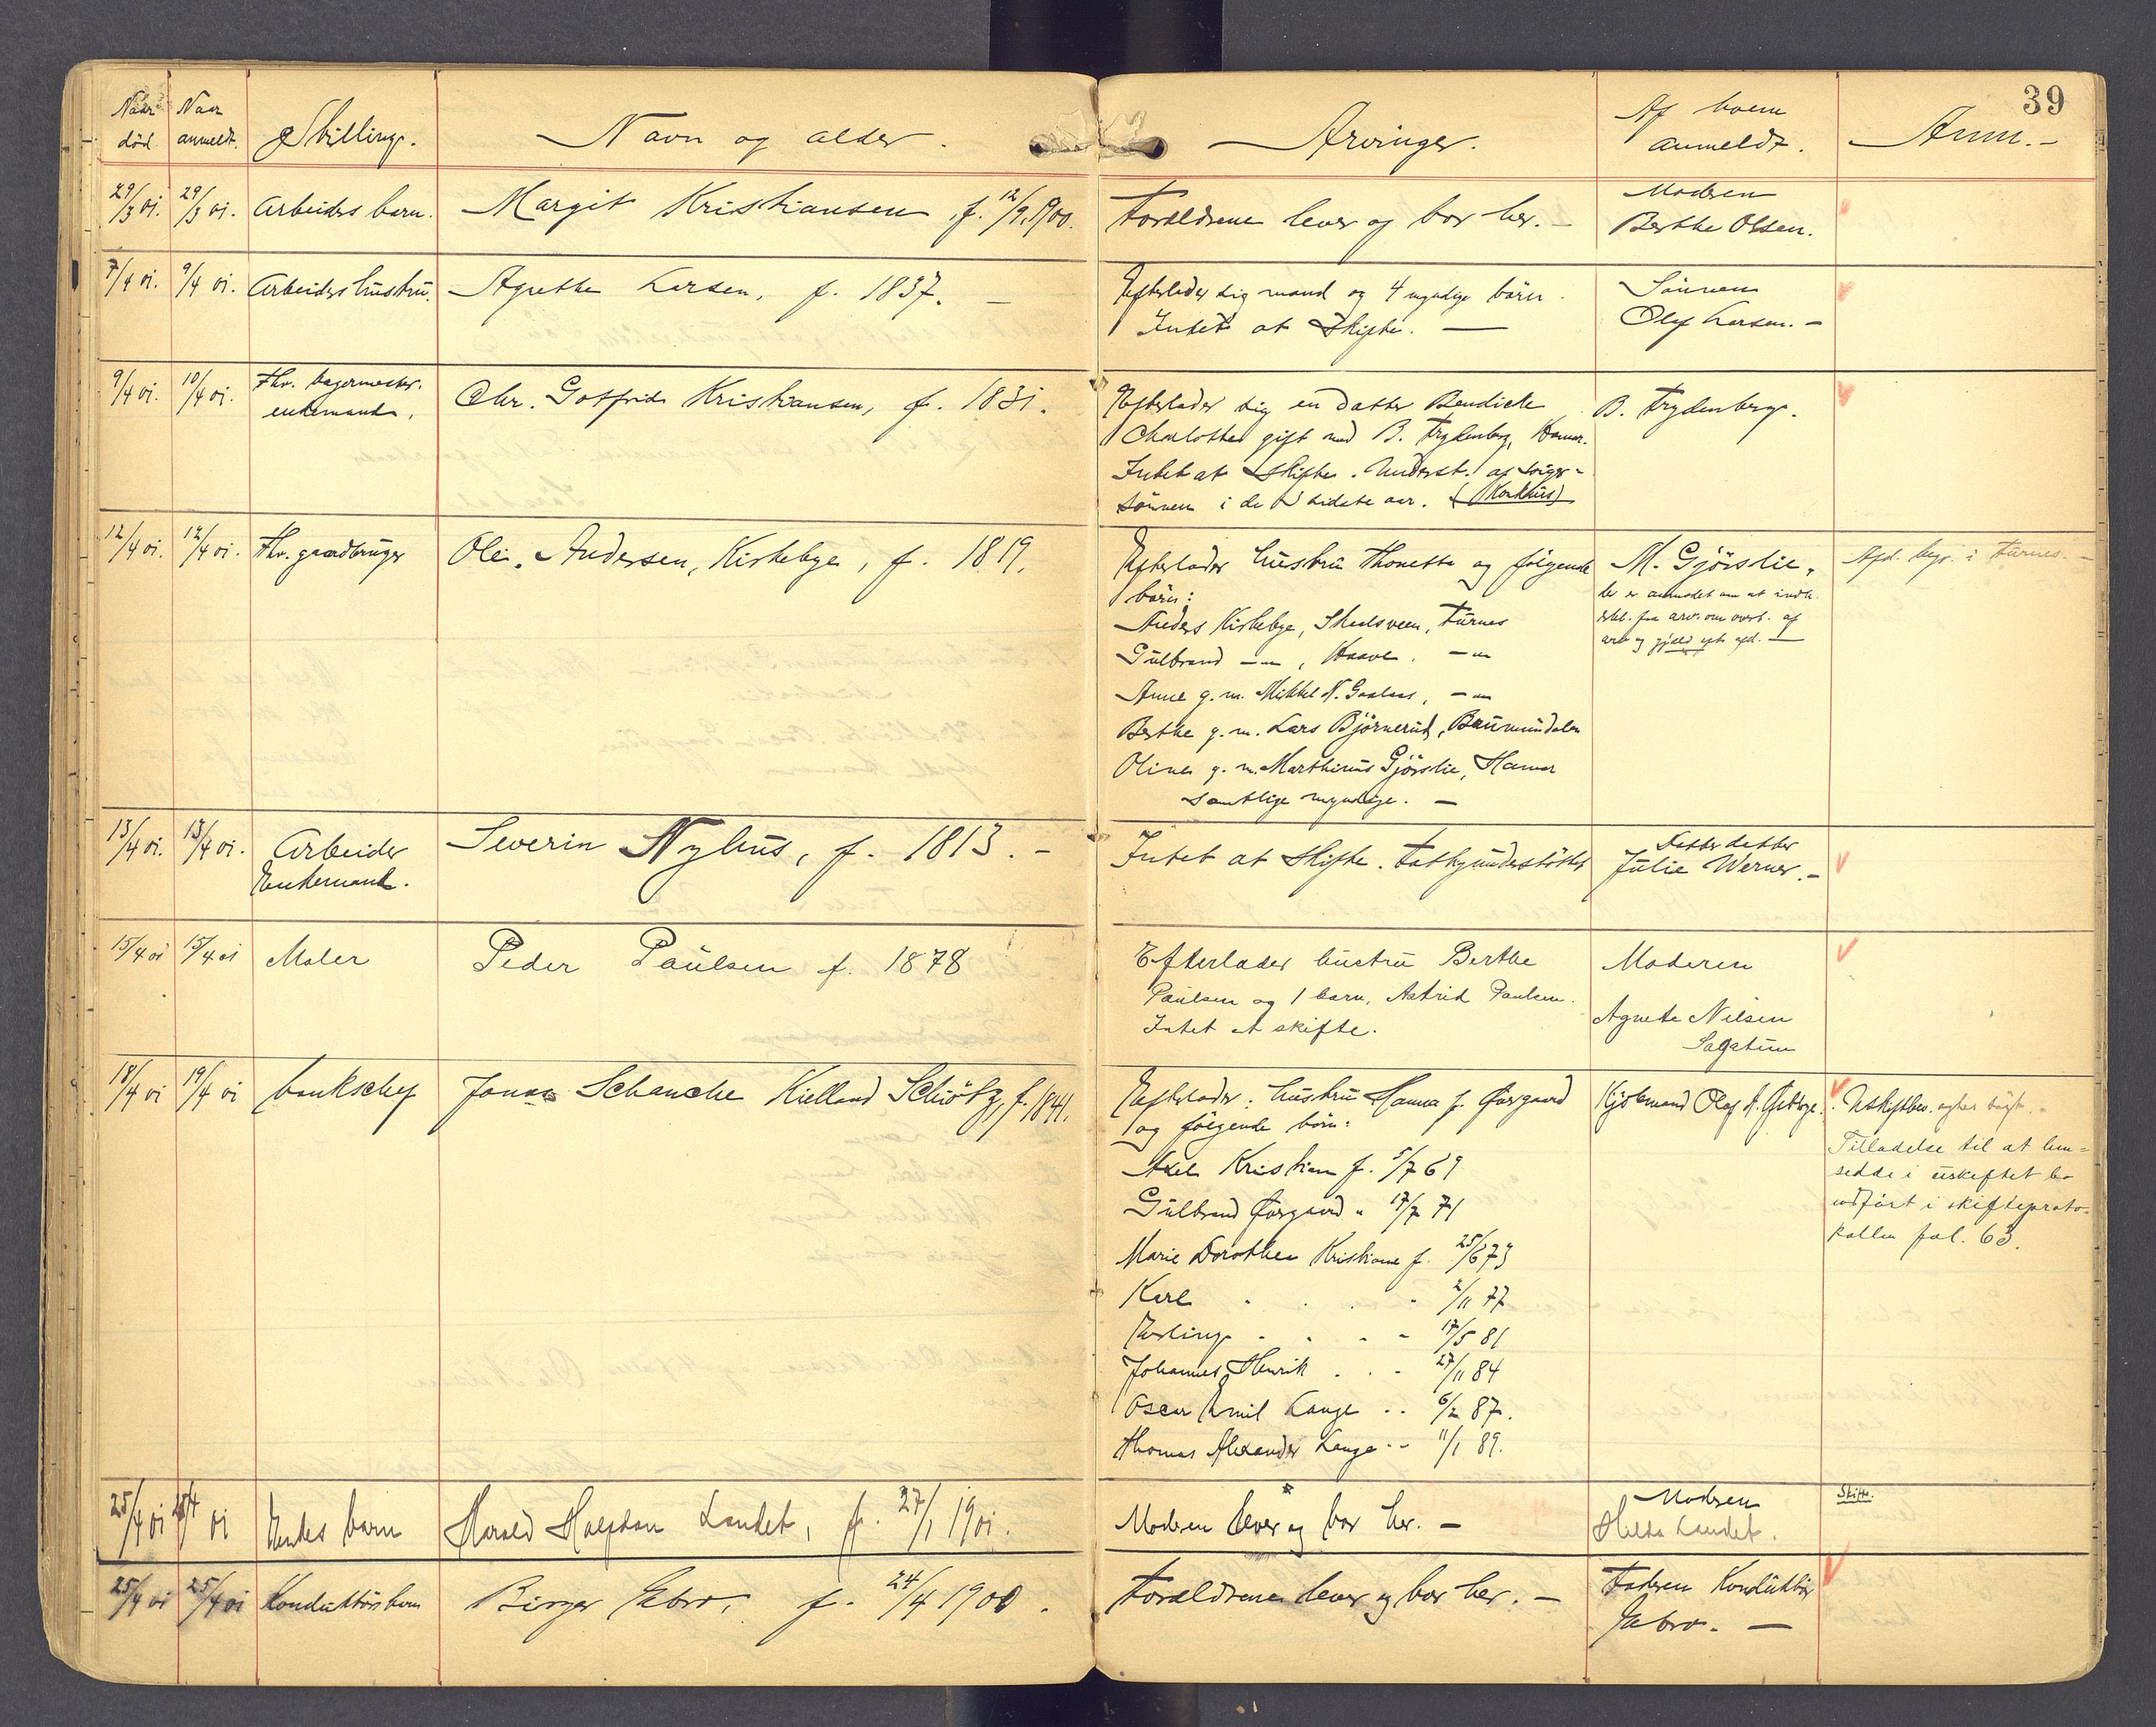 39
Naar død. Naar anmeldt. Stilling. Navn og alder. Arvinger. Af hvem anmeldt. Anm.-
29/3 01. 29/3 01. Arbeiders barn. Margit Kristiansen, f. 12/9 1900. Forældrene lever og bor her. - Moderen
Berthe Olsen.
7/4 01. 9/4 01. Arbeiders hustru. Agnethe Larsen, f. 1837. - Efterlader sig mand og 4 myndige børn. Sønnen
Intet at skifte. - Olaf Larsen. -
9/4 01. 10/4 01. Fhv. bagermester. Chr. Gotfrid Kristiansen, f. 1831. Efterlader sig en datter Bendicte B. Frydenberg.
enkemand. Charlotte gift med B. Frydenberg, Hamar.
Intet at skifte. Underst. af sviger-
sønnen i de sidste aar.
12/4 01. 12/4 01. Fhv. gaardbruger Ole Andersen, Kirkebye, f. 1819. Efterlader hustru Thonette og følgende M. Gjörslie, Afd. begr. i Furnes. -
børn: er anmodet om at indh.
Anders Kirkebye, Skulsveen, Furnes skl. fra arv. om overt. af
Gulbrand -"-, Haave. -"- arv og gjæld eft. afd. -
Anne g. m. Mikkel N. -"-
Berthe g. m. Lars Björnerud, Brumunddalen
Oline g. m. Marthinus Gjörslie, Hamar
samtlige myndige. -
13/4 01. 13/4 01. Arbeider Severin Nyhus, f. 1813. - Intet at skifte. Fattigunderstøttet Datterdatter
Enkemand. Julie Werner. -
15/4 01 15/4 01 Maler Peder Paulsen f. 1878 Efterlader hustru Berthe Moderen
Paulsen og 1 barn, Astrid Paulsen. Agnete Nilsen
Intet at skifte. Sagatun
18/4 01 19/4 01 bankchef Jonas Schanche Kielland Schiøtz, f. 1841. Efterlader: hustru Hanna f.Ørgaard Kjøbmand Olaf A.
og følgende børn: Tilladelse til at hen-
Axel Kristian f. 5/7 69 sidde i uskiftet bo
Gulbrand Ørgaard " 17/7 71 indført i skifteproto-
Marie Dorothea Kristiane f. 25/6 73 kollen fol. 63.
Karl " 2/11 77
Erling " 17/5 81
Johannes Henrik " 27/11 84
Oscar Emil Lange " 6/2 87.
Thomas Alexander Lange " 11/1 89.
25/4 01 25/4 01 Enkes barn Harald Halfdan Landet, f. 27/1 1901. Moderen lever og bor her. - Moderen Skifte.
Hilda Landet.
25/4 01 25/4 01 Konduktørs barn Birger Enbro, f. 24/4 1900. Forældrene lever og bor her. - Faderen Konduktør
Enbro. -